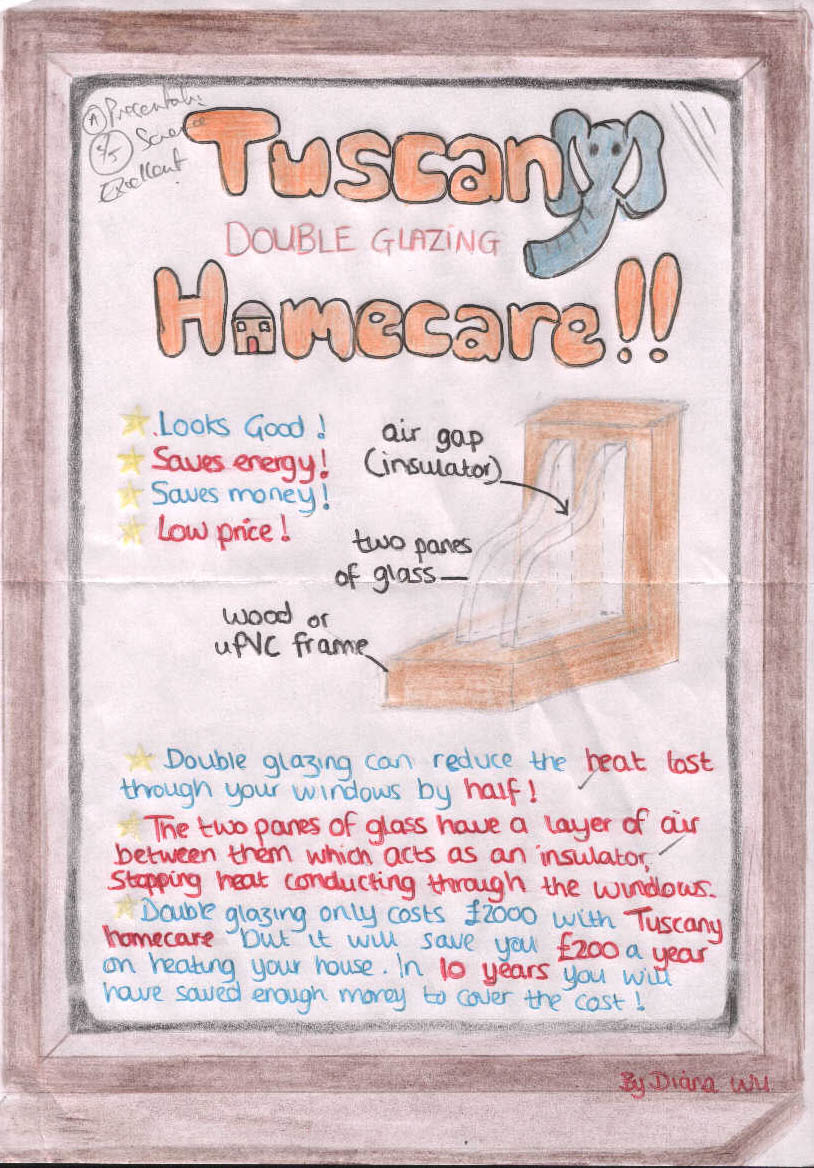 A Presentation
5/5 Science
Excellent
Tuscany
DOUBLE GLAZING
Homecare!!
Looks Good!
Saves energy!
Saves money!
Low price!
air gap
(insulator)
two panes
of glass
wood or
uPVC frame
Double glazing can reduce the heat lost
through your windows by half!
The two panes of glass have a layer of air
between them which acts as an insulator,
stopping heat conducting through the windows.
Double glazing only costs £2000 with Tuscany
homecare but it will save you £200 a year
on heating your house. In 10 years you will
have saved enough money to cover the cost!
By Diana Wu